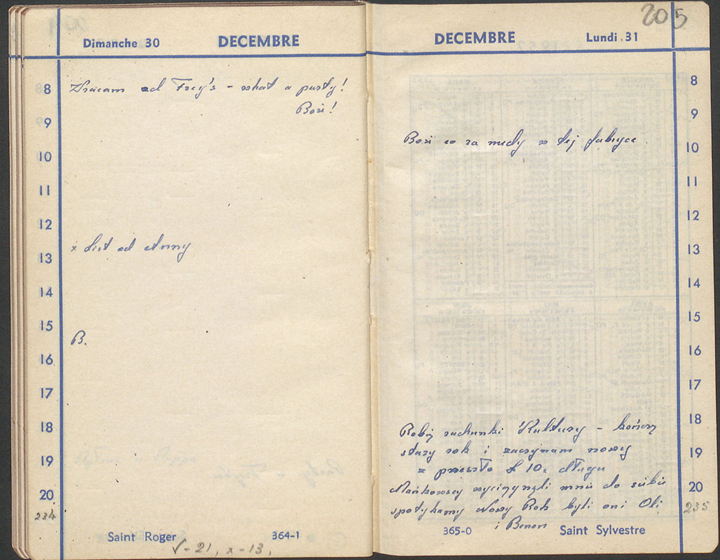 Dimanche 30 DECEMBRE
8 Wracam od Frey's - what a party!
Boże!
9
10
11
12
x List od Anny
13
14
15
B.
16
17
18
19
20
234
Saint Roger 364-1
√-21, x-13,
205
DECEMBRE Lundi 31
8
9
Boże co za nudy w tej fabryce
10
11
12
13
14
15
16
17
18
Robię rachunki 'Kultury - kończę
stary rok i zaczynam nowy
19
z przeszło £ 10. długu
Mońkowscy wyciągnęli mnie do siebie
20
spotykamy Nowy Rok byli oni Oli
235
i Benon
365-0 Saint Sylvestre